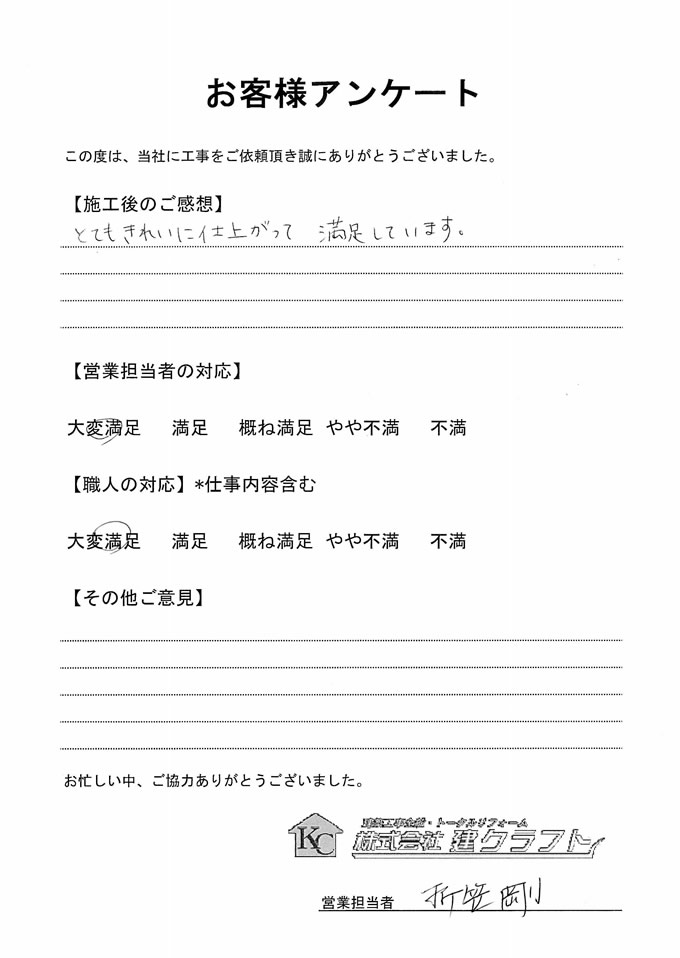 お客様アンケート
この度は、当社に工事をご依頼頂き誠にありがとうございました。
【施工後のご感想】
とてもきれいに仕上がって 満足しています。
【営業担当者の対応】
大変満足 満足 概ね満足 やや不満 不満
【職人の対応】*仕事内容含む
大変満足 満足 概ね満足 やや不満 不満
【その他ご意見】
お忙しい中、ご協力ありがとうございました。
建築工事全般・トータルリフォーム
KC 株式会社 建クラフト
営業担当者 折笠剛